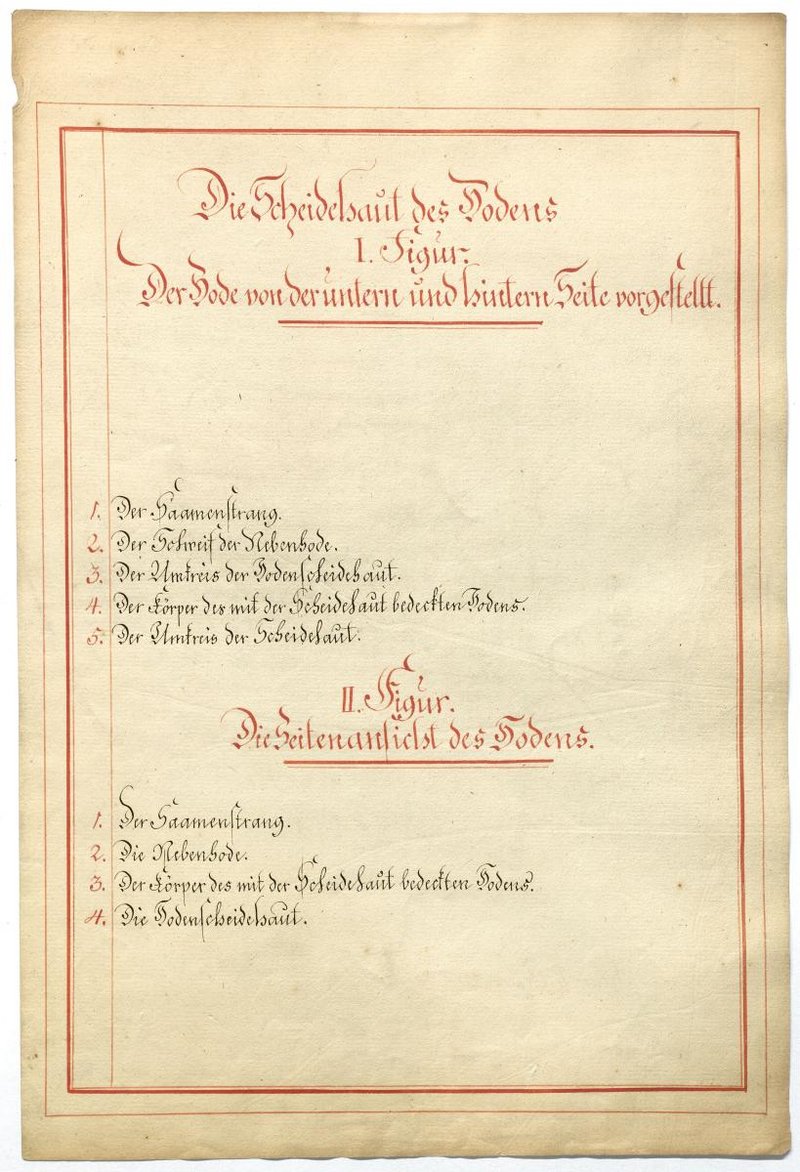 Die Scheidehaut des Hodens
I. Figur.
Der Hode von der untern und hintern Seite vorgestellt.
1. Der Saamenstrang.
2. Der Schweif der Nebenhode.
3. Der Umkreis der Hodenscheidehaut.
4. Der Körper des mit der Scheidehaut bedeckten Hodens.
5. Der Umkreis der Scheidehaut.
II. Figur.
Die Seitenansicht des Hodens.
1. Der Saamenstrang.
2. Die Nebenhode.
3. Der Körper des mit der Scheidehaut bedeckten Hodens.
4. Die Hodenscheidehaut.